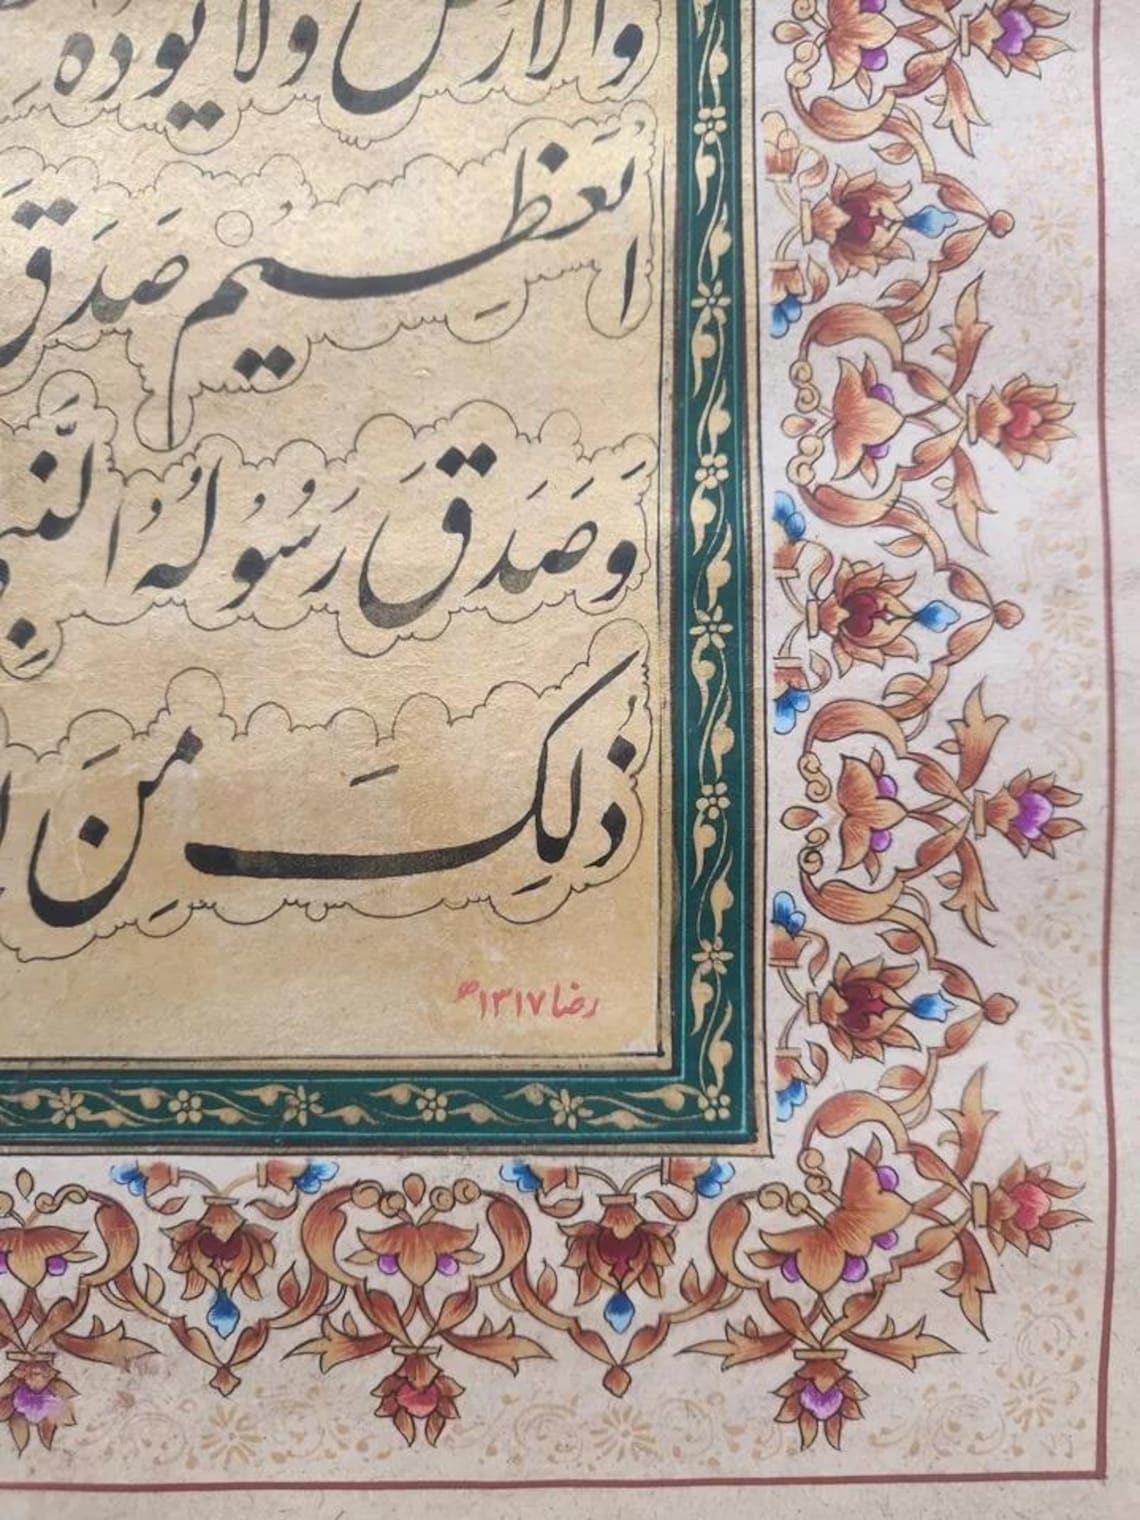 والأرض ولا يوده
العَظِيمُ صَدَقَ
وَصَدَقَ رَسُولُهُ النَّبِي
ذُلِكَ مِنَ
رضا ١٣١٧